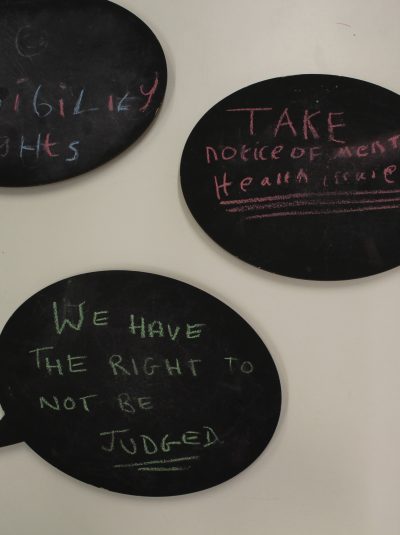 ibiLitY
gHts
TAKE
notice oF MENT
HeALth issue
WE HAVE
THE RIGHT TO
NOT BE
JUDGED